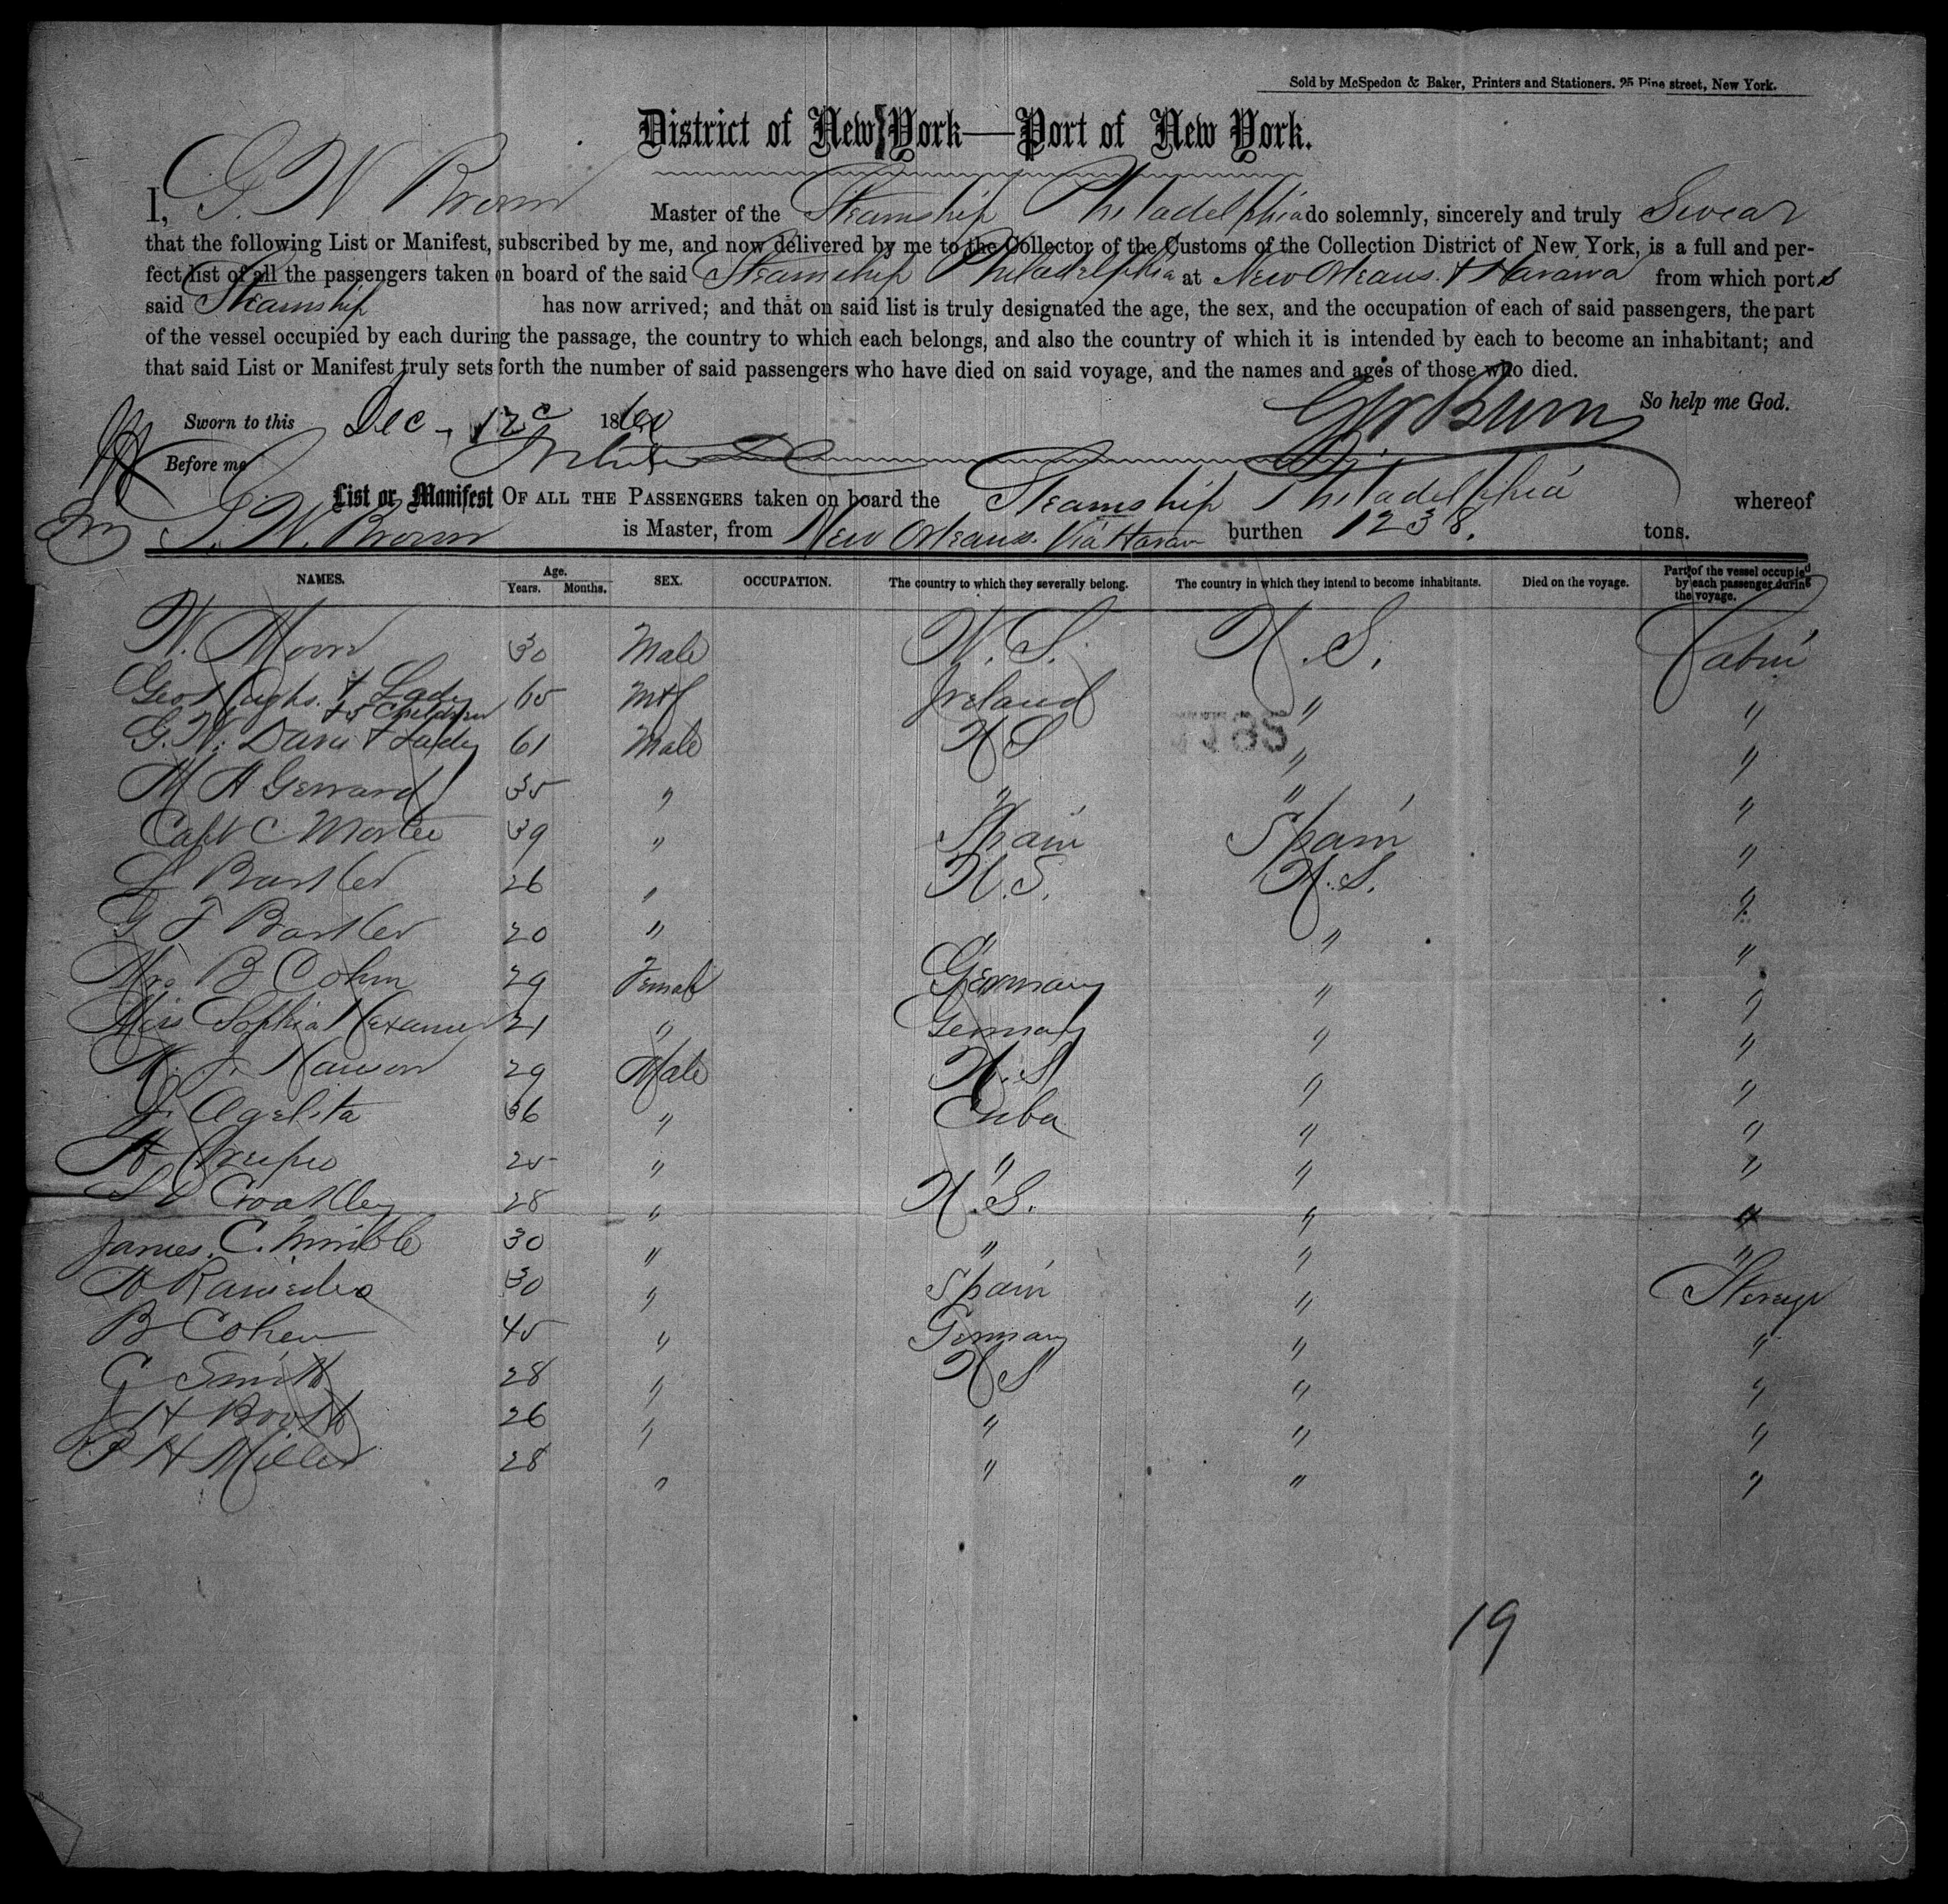 Sold by McSpedon & Baker, Printers and Stationers. 25 Pine street, New York.
District of New York—Port of New York.
I, G. W Brown Master of the Steamship Philadelphia do solemnly, sincerely and truly Swear
that the following List or Manifest, subscribed by me, and now delivered by me to the Collector of the Customs of the Collection District of New York, is a full and per-
fect list of all the passengers taken on board of the said Steamship Philadelphia at New Orleans & Havana from which ports
said Steamship has now arrived; and that on said list is truly designated the age, the sex, and the occupation of each of said passengers, the part
of the vessel occupied by each during the passage, the country to which each belongs, and also the country of which it is intended by each to become an inhabitant; and
that said List or Manifest truly sets forth the number of said passengers who have died on said voyage, and the names and ages of those who died.
So help me God.
Sworn to this Dec 12 1860
Before me
List or Manifest OF ALL THE PASSENGERS taken on board the Steamship Philadelphia whereof
G. W. Brown is Master, from New Orleans Via Havan burthen 1238. tons.
NAMES. Age. Years. Months. SEX. OCCUPATION. The country to which they severally belong. The country in which they intend to become inhabitants. Died on the voyage. Part of the vessel occupied by each passenger during the voyage.
30 Male U.S. U.S. Cabin
Geo & Lady 65 M&f Ireland " "
& 5 Children
G. W. Davis & Lady 61 Male U S " "
35 " " " "
Capt C 39 " Spain Spain "
26 " U.S. U.S. "
20 " " " "
Mrs B Cohen 29 Female Germany " "
Miss Sophia 21 " Germany " "
29 Male U.S " "
36 " Cuba " "
25 " " " "
28 " U.S. " "
James C. 30 " " " "
30 " Spain " Sterage
B Cohen 45 " Germany " "
C Smith 28 " U S " "
J H Booth 26 " " " "
P H Miller 28 " " " "
19